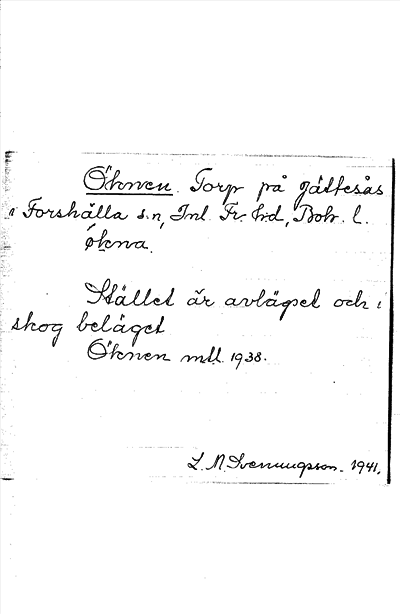 Öknen. Torp på Jättesås
i Forshälla s.n, Inl. Fr. hd, Boh. l.
økna.
Stället är avlägset och i
skog beläget
Öknen mtl. 1938.
L. N. Svenungsson. 1941.